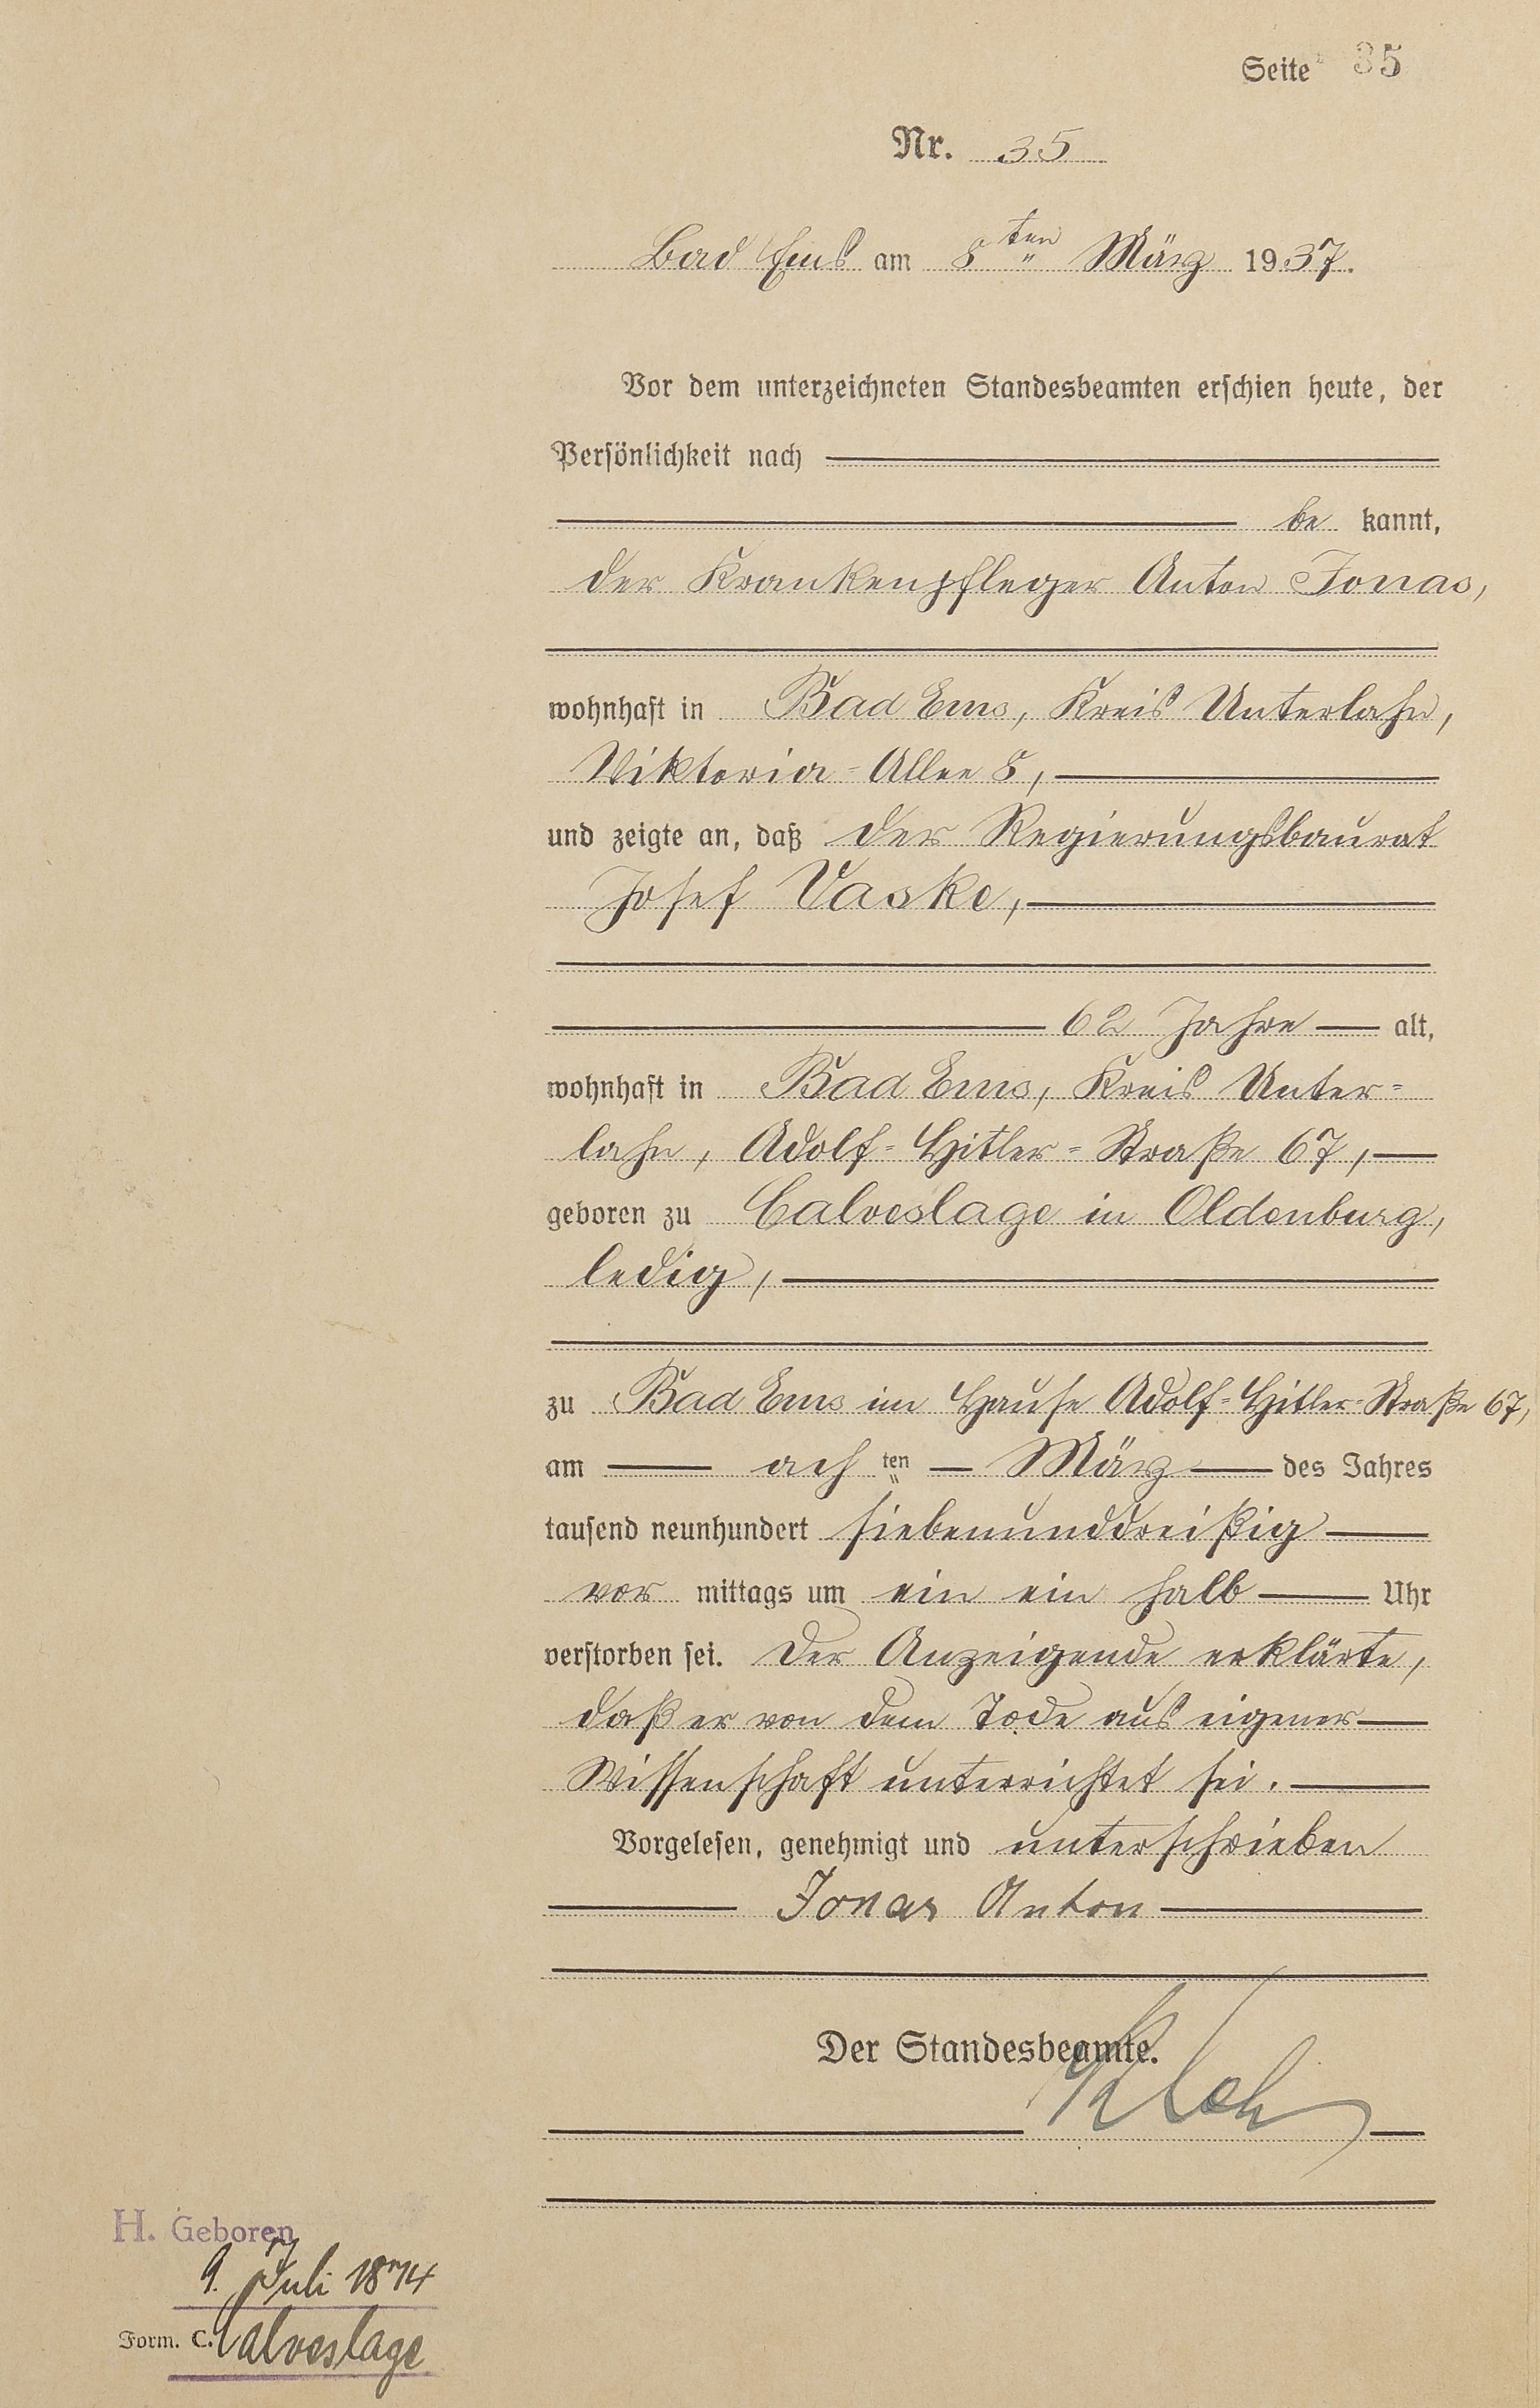 Seite 35
Nr. 35
Bad Ems am 8ten März 1937.
Vor dem unterzeichneten Standesbeamten erschien heute, der
Persönlichkeit nach
be kannt,
der Krankenpfleger Anton Jonas,
wohnhaft in Bad Ems, Kreis Unterlahn,
Viktoria-Allee 8,
und zeigte an, daß der Regierungsbaurat
Josef Vaske,
62 Jahre alt,
wohnhaft in Bad Ems, Kreis Unter-
lahn, Adolf-Hitler-Straße 67,
geboren zu Calveslage in Oldenburg,
ledig,
zu Bad Ems im Hause Adolf-Hitler-Straße 67,
am ach ten März des Jahres
tausend neunhundert siebenunddreißig
vor mittags um ein ein halb Uhr
verstorben sei. Der Anzeigende erklärte,
daß er von dem Tode aus eigener
Wissenschaft unterrichtet sei.
Vorgelesen, genehmigt und unterschrieben
Jonas Anton
Der Standesbeamte.
H. Geboren
9. Juli 1874
Form. C. Calveslage